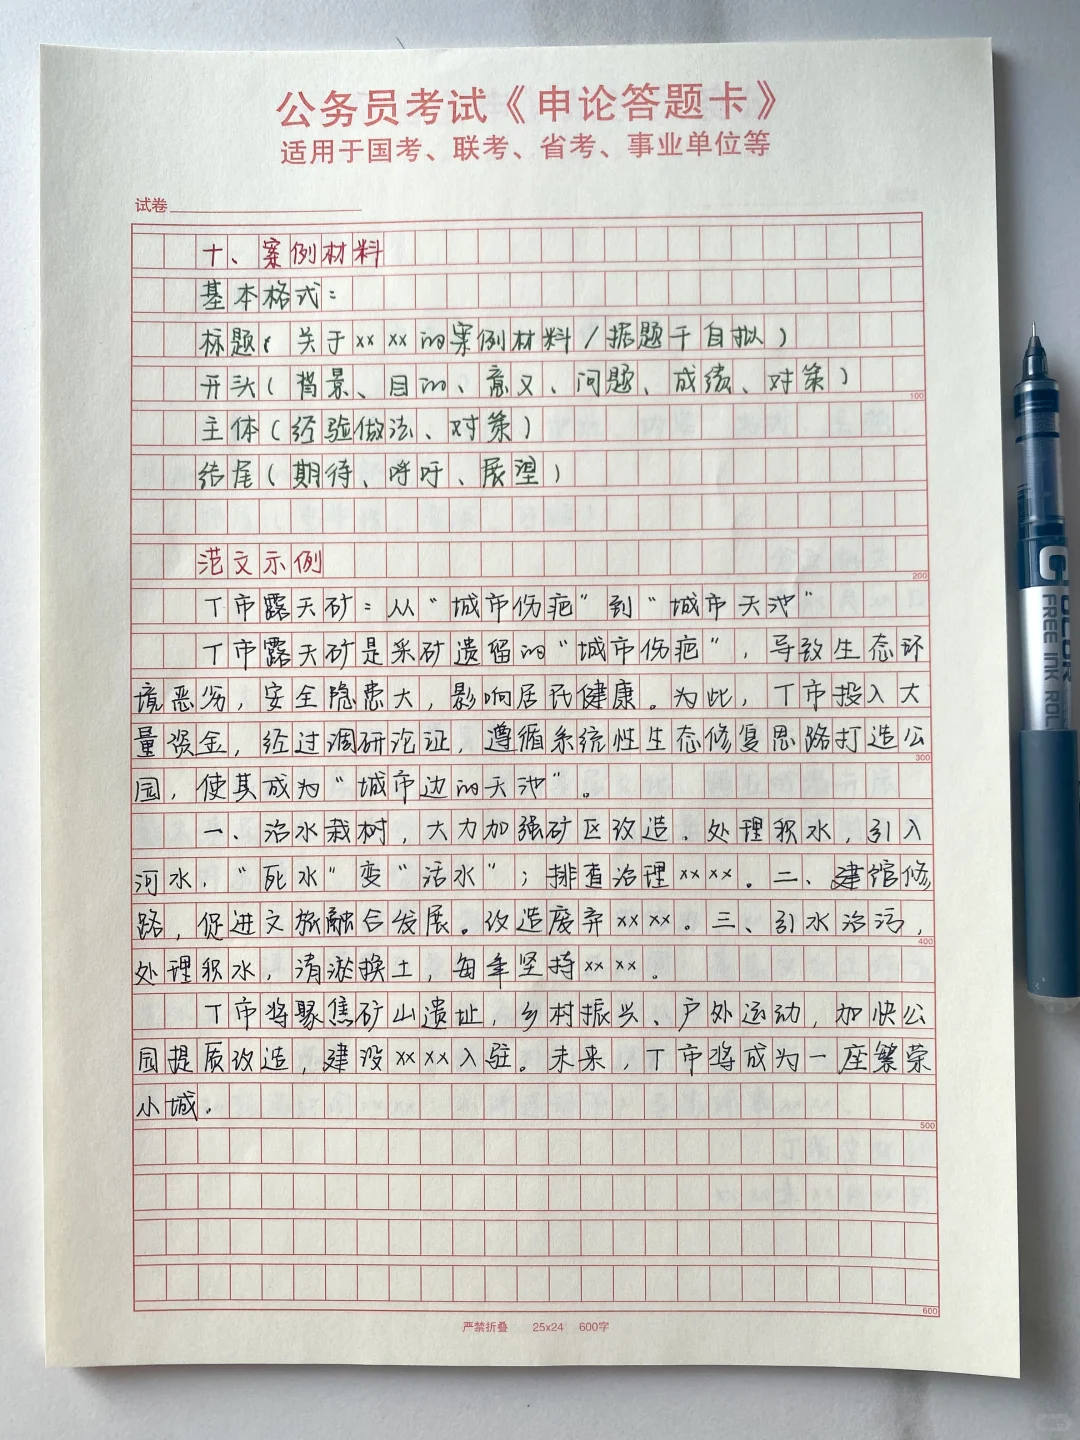 公务员考试《申论答题卡》
适用于国考、联考、省考、事业单位等
试卷
十、案例材料
基本格式：
标题（关于xx xx的案例材料/据题干自拟）
开头（背景、目的、意义、问题、成绩、对策）
100
主体（经验做法、对策）
结尾（期待、呼吁、展望）
范文示例
200
丁市露天矿：从“城市伤疤”到“城市天池”
丁市露天矿是采矿遗留的“城市伤疤”，导致生态环
境恶劣，安全隐患大，影响居民健康。为此，丁市投入大
量资金，经过调研论证，遵循系统性生态修复思路打造公
300
园，使其成为“城市边的天池”。
一、治水栽树，大力加强矿区改造。处理积水，引入
河水，“死水”变“活水”；排查治理xxxx。二、建馆修
路，促进文旅融合发展。改造废弃xxxx。三、引水治污，
400
处理积水，清淤换土，每年坚持xxxx。
丁市将聚焦矿山遗址，乡村振兴、户外运动，加快公
园提质改造，建设xxxx入驻。未来，丁市将成为一座繁荣
小城。
500
600
严禁折叠 25x24 600字
FREE INK ROL